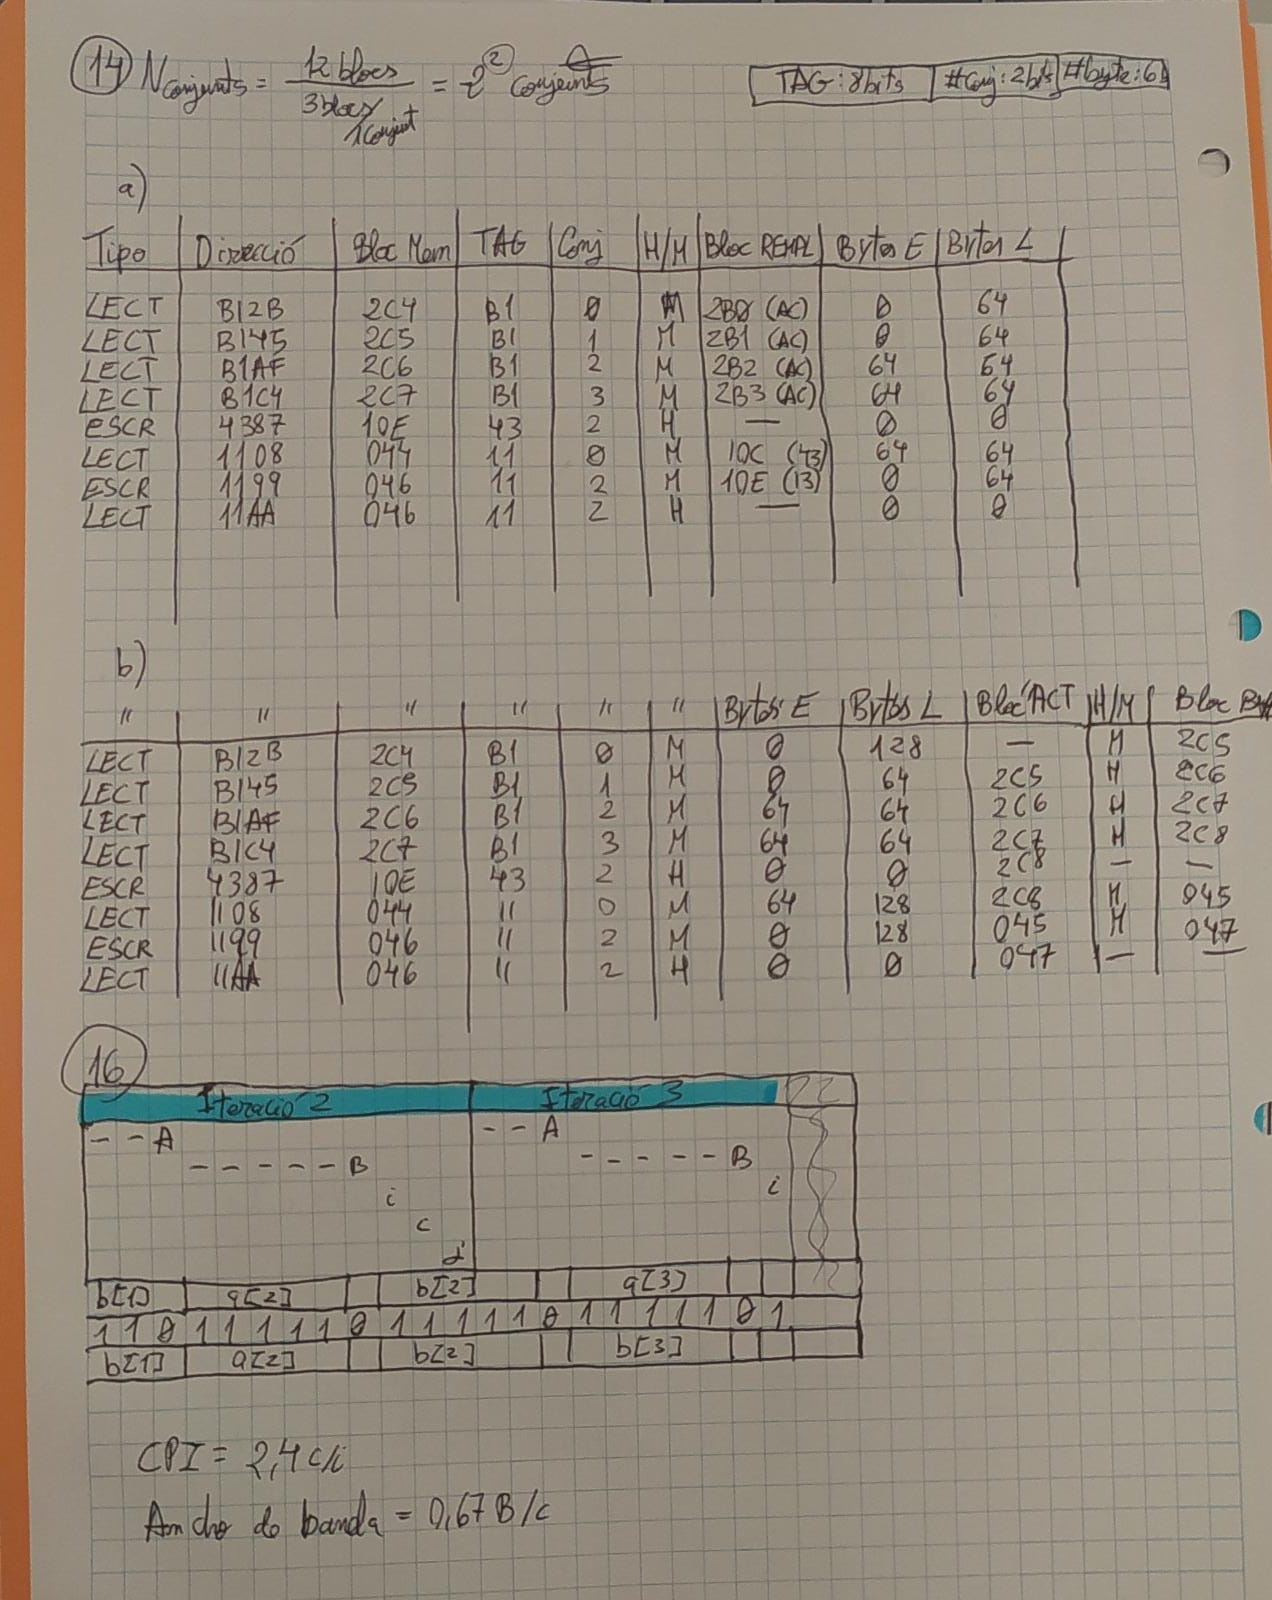 14 Nconjunts = 12 blocs / 3 blocs/1 conjunt = 2² conjunts
TAG: 8 bits | #conj: 2 bits | #byte: 6 b
a)
Tipo | Direcció | Bloc Mem | TAG | Conj | H/M | Bloc REMPL | Bytes E | Bytes L
LECT | B12B | 2C4 | B1 | 0 | M | 2B0 (AC) | 0 | 64
LECT | B145 | 2C5 | B1 | 1 | M | 2B1 (AC) | 0 | 64
LECT | B1AF | 2C6 | B1 | 2 | M | 2B2 (AC) | 64 | 64
LECT | B1C4 | 2C7 | B1 | 3 | M | 2B3 (AC) | 64 | 64
ESCR | 4387 | 10E | 43 | 2 | H | — | 0 | 0
LECT | 1108 | 044 | 11 | 0 | M | 10C (43) | 64 | 64
ESCR | 1199 | 046 | 11 | 2 | M | 10E (13) | 0 | 64
LECT | 11AA | 046 | 11 | 2 | H | — | 0 | 0
b)
" | " | " | " | " | " | Bytes E | Bytes L | Bloc ACT | H/M | Bloc
LECT | B12B | 2C4 | B1 | 0 | M | 0 | 128 | — | M | 2C5
LECT | B145 | 2C5 | B1 | 1 | M | 0 | 64 | 2C5 | H | 2C6
LECT | B1AF | 2C6 | B1 | 2 | M | 64 | 64 | 2C6 | H | 2C7
LECT | B1C4 | 2C7 | B1 | 3 | M | 64 | 64 | 2C7 | H | 2C8
ESCR | 4387 | 10E | 43 | 2 | H | 0 | 0 | 2C8 | — | —
LECT | 1108 | 044 | 11 | 0 | M | 64 | 128 | 2C8 | M | 045
ESCR | 1199 | 046 | 11 | 2 | M | 0 | 128 | 045 | M | 047
LECT | 11AA | 046 | 11 | 2 | H | 0 | 0 | 047 | — | —
16
Iteració 2 | Iteració 3
- - A | - - A
- - - - - B | - - - - - B
i | i
c
d
b[1] | a[2] | b[2] | a[3]
1 1 0 1 1 1 1 1 0 1 1 1 1 1 0 1 1 1 1 1 0 1
b[1] | a[2] | b[2] | b[3]
CPI = 2,4 c/i
Ancho de banda = 0,67 B/c